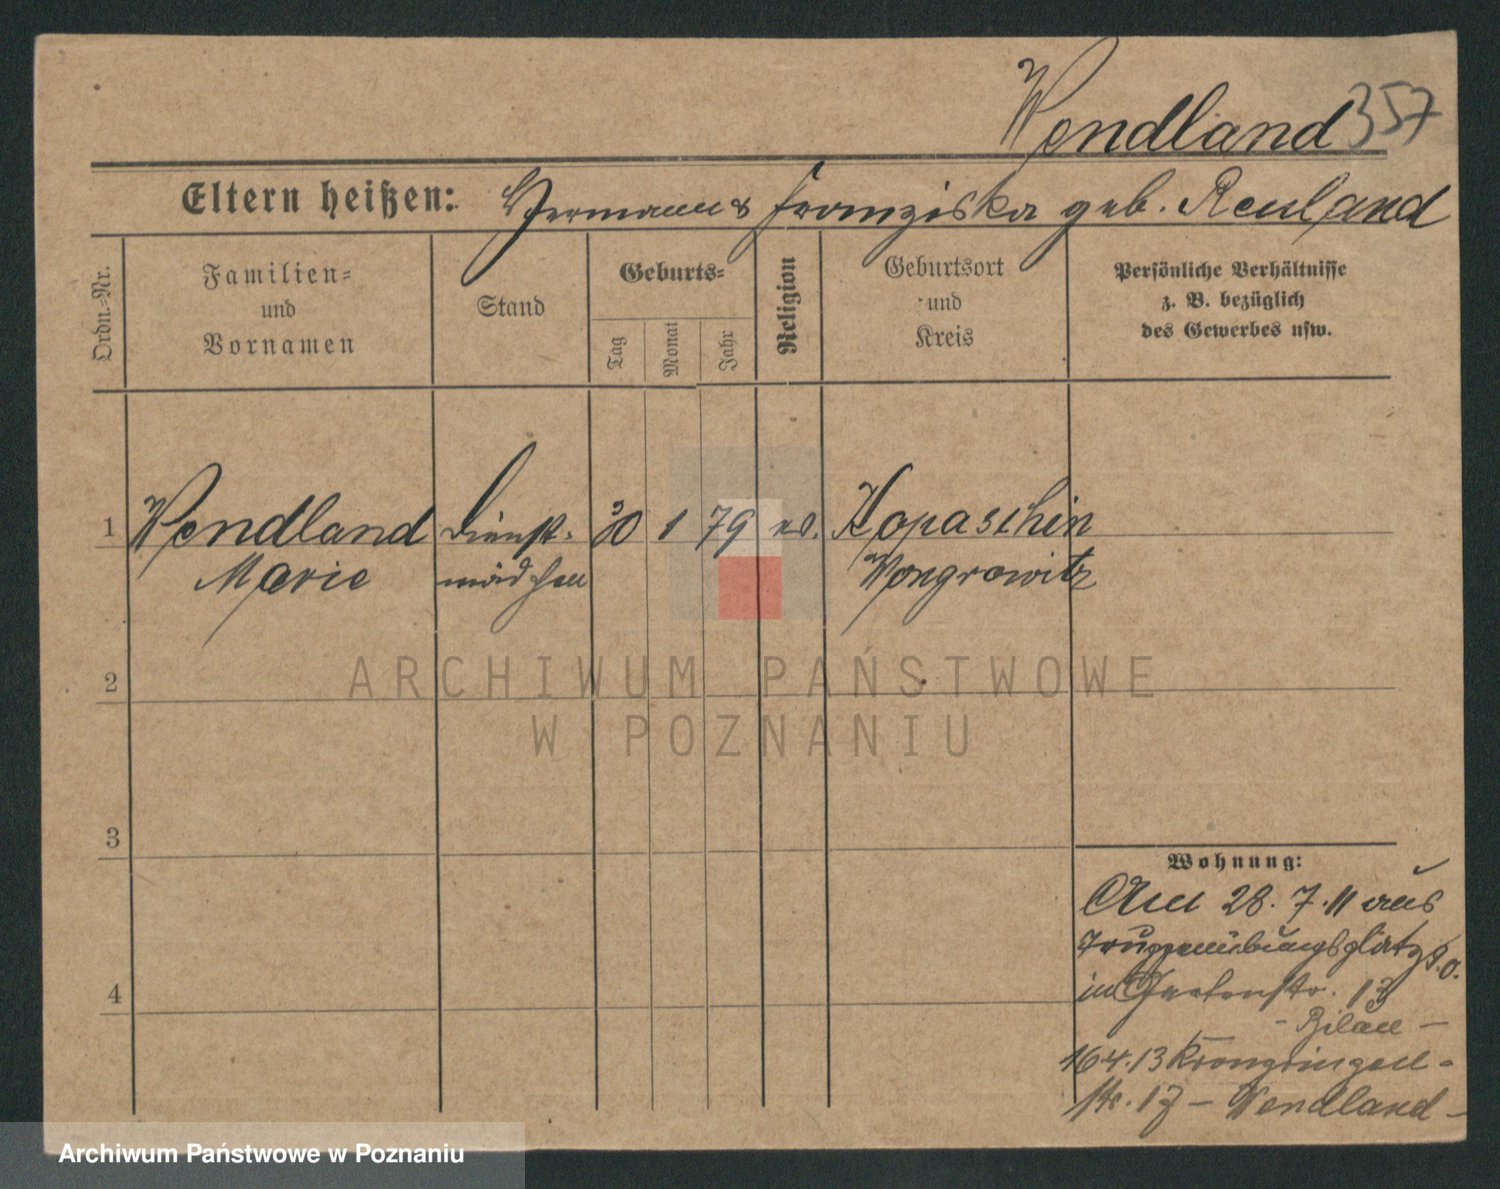 Wendland 357
Eltern heißen: Hermann & Franziska geb. Reuland
Ordn.-Nr.
Familien-
und
Vornamen
Stand
Geburts-
Tag
Monat
Jahr
Religion
Geburtsort
und
Kreis
Persönliche Verhältnisse
z. B. bezüglich
des Gewerbes usw.
1 Wendland Dienst- 30 1 79 ev. Kopaschin
Marie mädchen Wongrowitz
2
3
4
Wohnung:
Am 28.7.11 aus
Truppenübungsplatz
in Gartenstr. 13
16.4.13 Kronprinzen-
str. 17 - Wendland -
ARCHIWUM PAŃSTWOWE
W POZNANIU
Archiwum Państwowe w Poznaniu